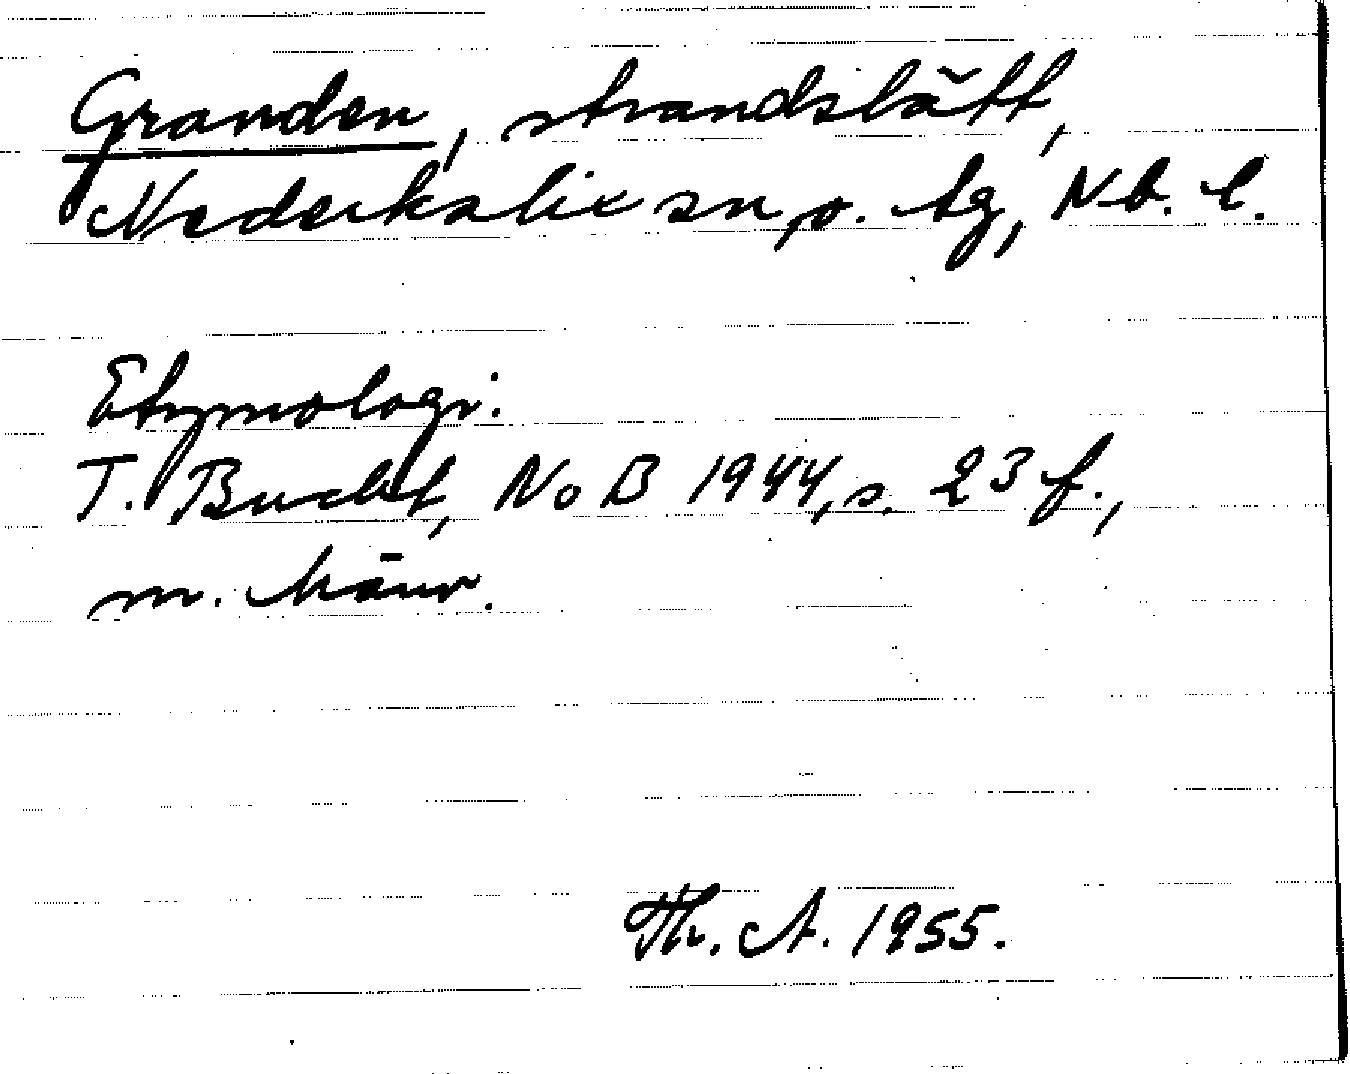 Granden, strandslätt,
Nederkalix sn, o. tg, Nb. l.
Etymologi:
T. Bucht, NoB 1944, s. 23 f.,
m. hänv.
Th. A. 1955.